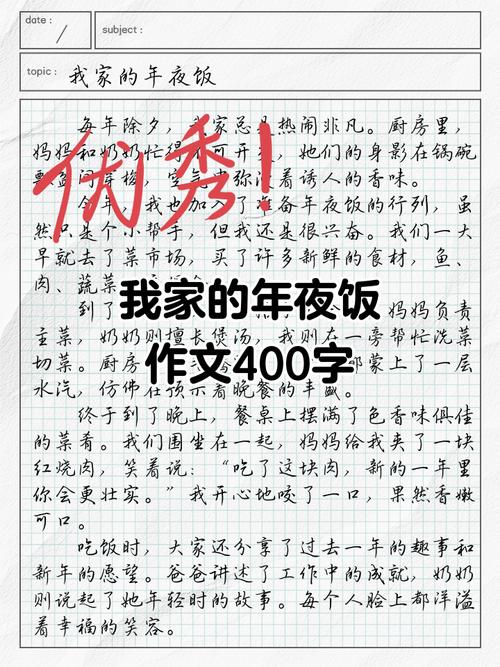 date :
/
subject :
topic : 我家的年夜饭
优秀!
每年除夕，我家总是热闹非凡。厨房里，
妈妈和奶奶忙得不可开交，她们的身影在锅碗
瓢盆间穿梭，空气中弥漫着诱人的香味。
今年，我也加入了准备年夜饭的行列，虽
然只是个小帮手，但我还是很兴奋。我们一大
早就去了菜市场，买了许多新鲜的食材，鱼、
肉、蔬菜
我家的年夜饭
到了 妈妈负责
主菜，奶奶则擅长煲汤，我则在一旁帮忙洗菜
切菜。厨房 都蒙上了一层
作文400字
水汽，仿佛在预示着晚餐的丰盛。
终于到了晚上，餐桌上摆满了色香味俱佳
的菜肴。我们围坐在一起，妈妈给我夹了一块
红烧肉，笑着说：“吃了这块肉，新的一年里
你会更壮实。”我开心地咬了一口，果然香嫩
可口。
吃饭时，大家还分享了过去一年的趣事和
新年的愿望。爸爸讲述了工作中的成就，奶奶
则说起了她年轻时的故事。每个人脸上都洋溢
着幸福的笑容。